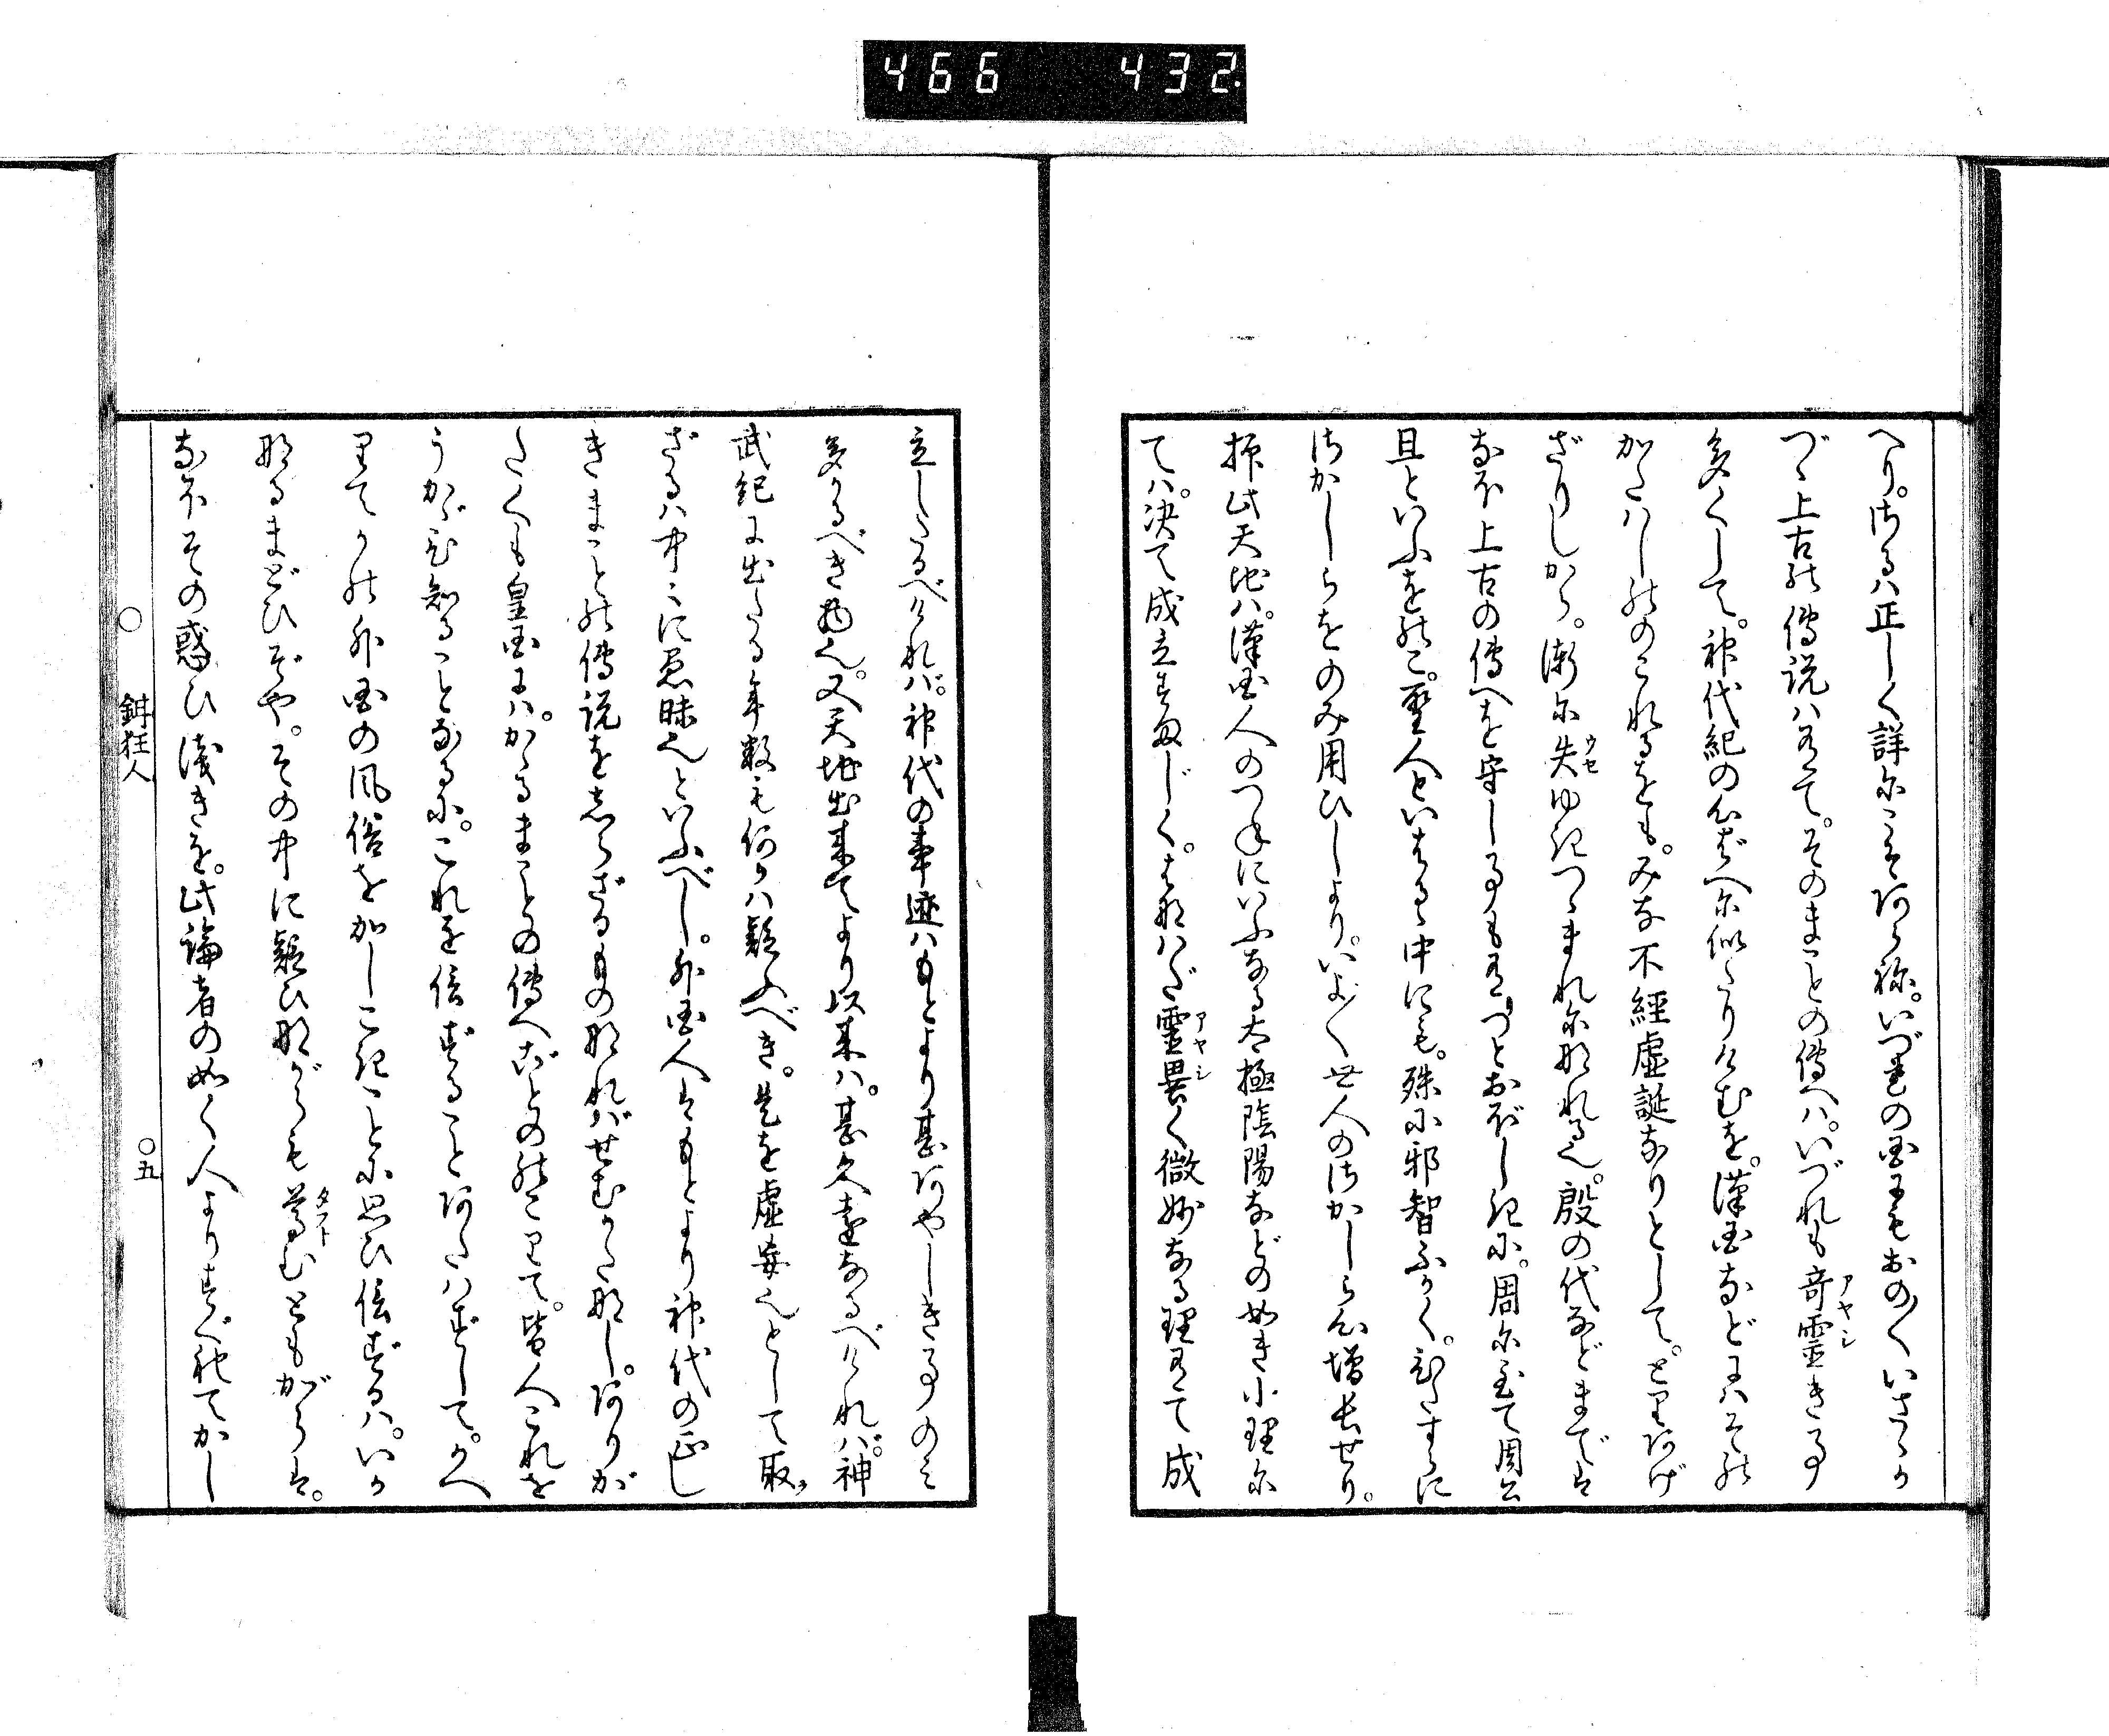 466 432
へり。さるは正しく詳にこそあらね。いづれの国にもおの〱いさゝか
づゝ上古の傳説は有て。そのまことの傳へは。いづれも奇靈き事
アヤシ
多くして。神代紀の心ばへに似たりけむを。漢国などにはその
かたはしのこれるをも。みな不經虛誕なりとして。とりあげ
ざりしから。漸に失ゆきつゝまれになれる也。殷の代などまでは
ウセ
なほ上古の傳へを守し事も有つとおぼしきに。周に至て周公
旦といふをのこ。聖人といはるゝ中にも。殊に邪智ふかく。ひたすらに
さかしらをのみ用ひしより。いよ〱世人のさかしら心増長せり。
抑此天地は。漢国人のつねにいふなる太極陰陽などの如き小理に
ては。決て成立すまじく。はなはだ靈異く微妙なる理有て成
アヤシ
立したるべければ。神代の事迹はもとより甚あやしき事のみ
多かるべき物也。又天地出来てより以来は。甚久遠なるべければ。神
武紀に出たる年數も何かは疑ふべき。是を虛妄也として取ら
ざるは中〻に愚昧也といふべし。外国人はもとより神代の正し
きまことの傳説をしらざるものなればせむかたなし。ありが
たくも皇国には。かゝるまことの傳へごとのこりて。皆人これを
うかゞひ知ることなるに。これを信ずることあたはずして。かへ
りてかの外国の風俗をかしこきことに思ひ信ずるは。いか
なるまどひぞや。その中に疑ひながらも尊むともがらは。
タフト
なほその惑ひ淺きを。此論者の如く人よりすぐれてかし
○ 鉗狂人 ○五